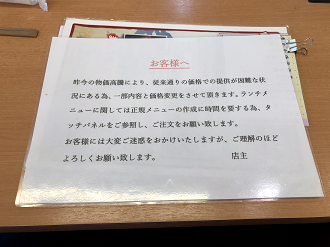 お客様へ
昨今の物価高騰により、従来通りの価格での提供が困難な状
況にある為、一部内容と価格変更をさせて頂きます。ランチメ
ニューに関しては正規メニューの作成に時間を要する為、タ
ッチパネルをご参照し、ご注文をお願い致します。
お客様には大変ご迷惑をおかけいたしますが、ご理解のほど
よろしくお願い致します。 店主